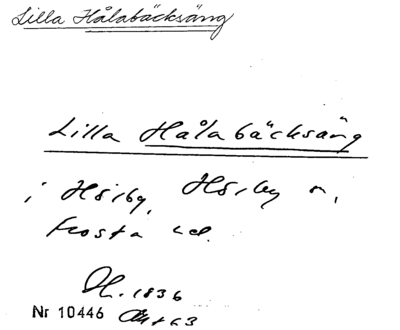 Lilla Hålabäcksäng
Lilla Hålabäcksäng
i Hörby, Hörby sn,
Frosta hd.
1836
Nr 10446